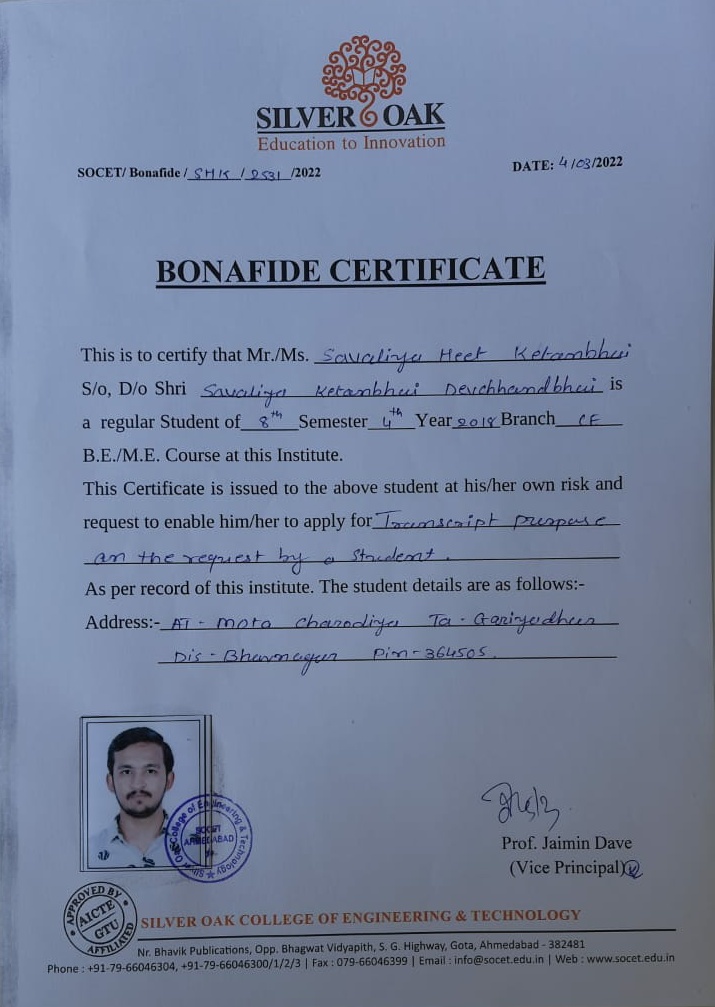 SILVER OAK
Education to Innovation
SOCET/ Bonafide / SHK / 2531 /2022
DATE: 4/03/2022
BONAFIDE CERTIFICATE
This is to certify that Mr./Ms. Savaliya Heet Ketanbhai
S/o, D/o Shri Savaliya Ketanbhai Devchhandbhai is
a regular Student of 8th Semester 4th Year 2018 Branch CE
B.E./M.E. Course at this Institute.
This Certificate is issued to the above student at his/her own risk and
request to enable him/her to apply for Transcript purpose
on the request by a Student.
As per record of this institute. The student details are as follows:-
Address:- AT - Mota Charodiya Ta - Gariyadhar
Dis - Bhavnagar Pin - 364505.
Silver Oak College of Engineering & Technology
SOCET
AHMEDABAD
Prof. Jaimin Dave
(Vice Principal)
APPROVED BY
AICTE
GTU
AFFILIATED
SILVER OAK COLLEGE OF ENGINEERING & TECHNOLOGY
Nr. Bhavik Publications, Opp. Bhagwat Vidyapith, S. G. Highway, Gota, Ahmedabad - 382481
Phone : +91-79-66046304, +91-79-66046300/1/2/3 | Fax : 079-66046399 | Email : info@socet.edu.in | Web : www.socet.edu.in